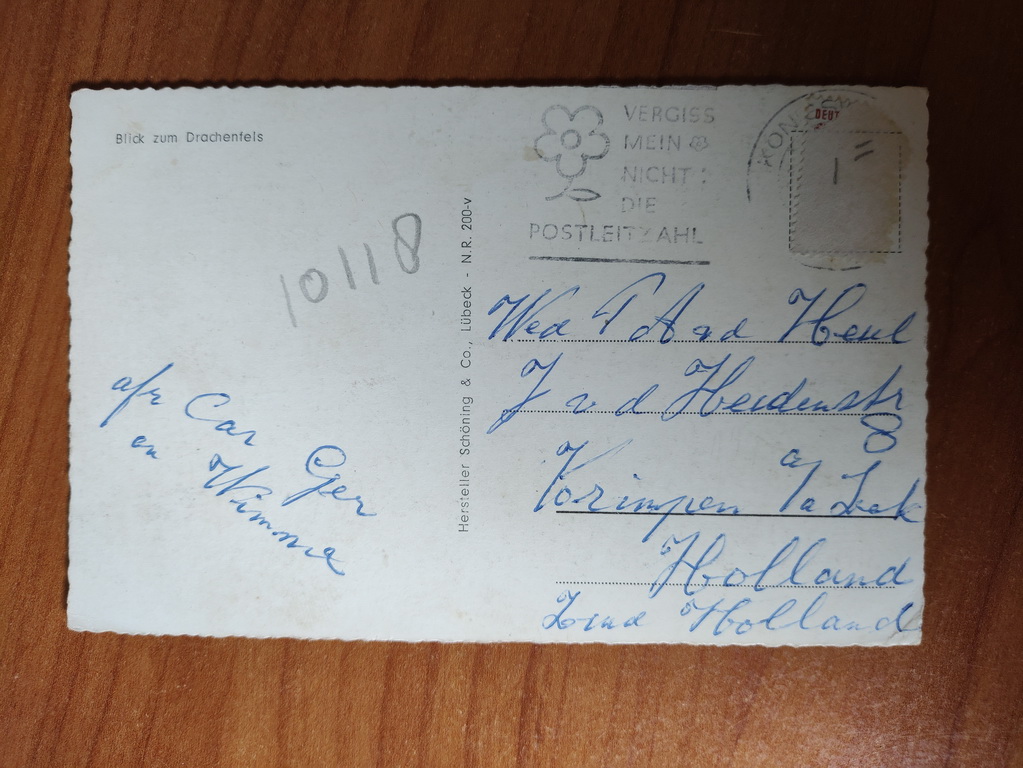 Blick zum Drachenfels
VERGISS
MEIN
NICHT:
DIE
POSTLEITZAHL
DEUT
10118
Hersteller Schöning & Co., Lübeck - N.R. 200-v
Wed T A v d Heul
J v d Heidenstr
8
Krimpen a/a Lek
Holland
Zuid Holland
afz Car Ger
en Wimma